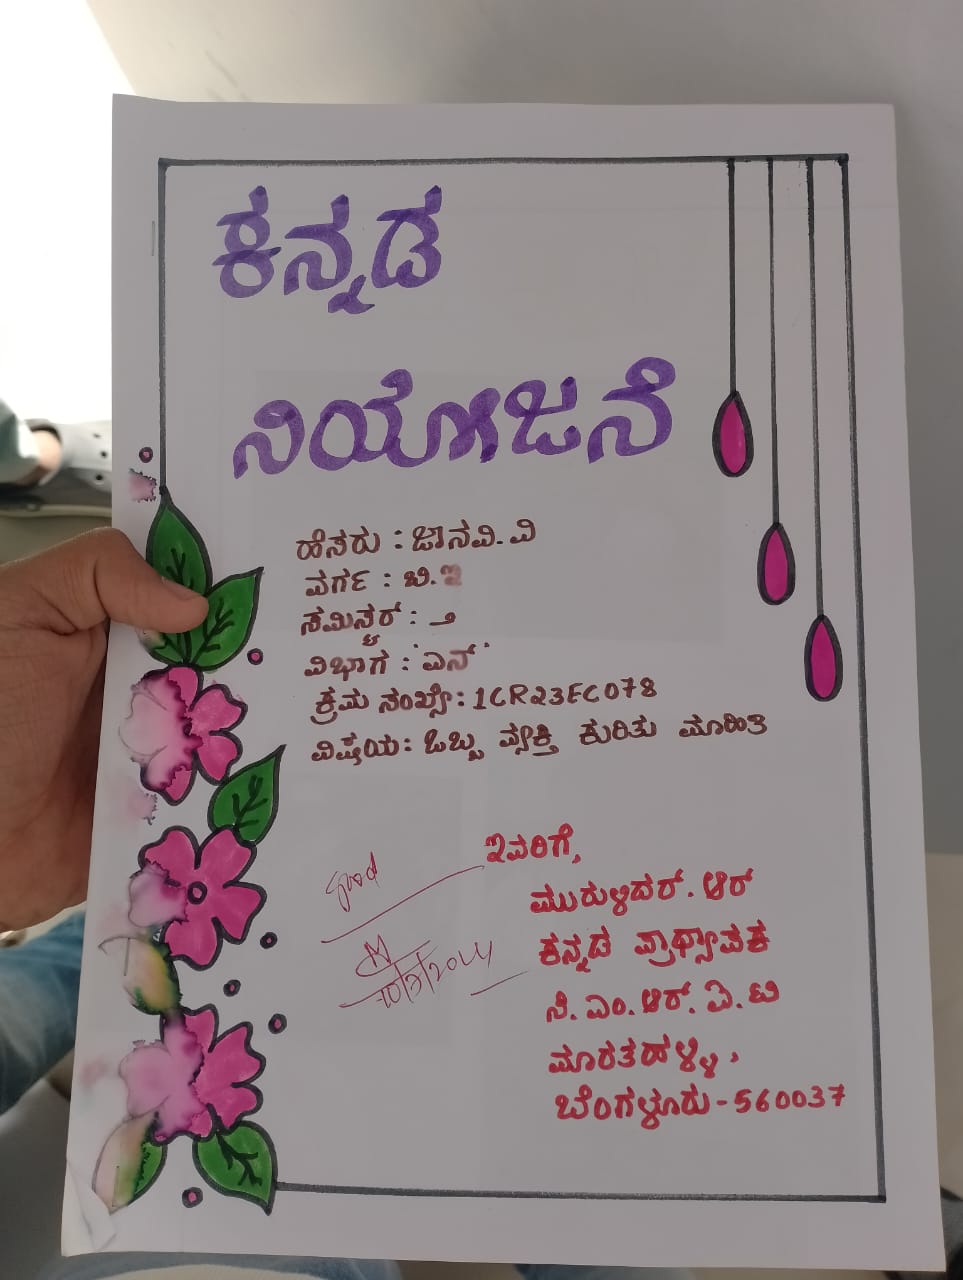 ಕನ್ನಡ
ನಿಯೋಜನೆ
ಹೆಸರು : ಜಾನವಿ. ವಿ
ವರ್ಗ : ಬಿ. ಇ
ಸೆಮಿಸ್ಟರ್ :
ವಿಭಾಗ : 'ಎನ್'
ಕ್ರಮ ಸಂಖ್ಯೆ : 1CR23EC078
ವಿಷಯ : ಒಬ್ಬ ವ್ಯಕ್ತಿ ಕುರಿತು ಮಾಹಿತಿ
ಇವರಿಗೆ,
ಮುರುಳಿದರ್. ಆರ್
ಕನ್ನಡ ಪ್ರಾಧ್ಯಾಪಕ
ಸಿ. ಎಂ. ಆರ್. ಐ. ಟಿ
ಮಾರತಹಳ್ಳಿ,
ಬೆಂಗಳೂರು - 560037
good